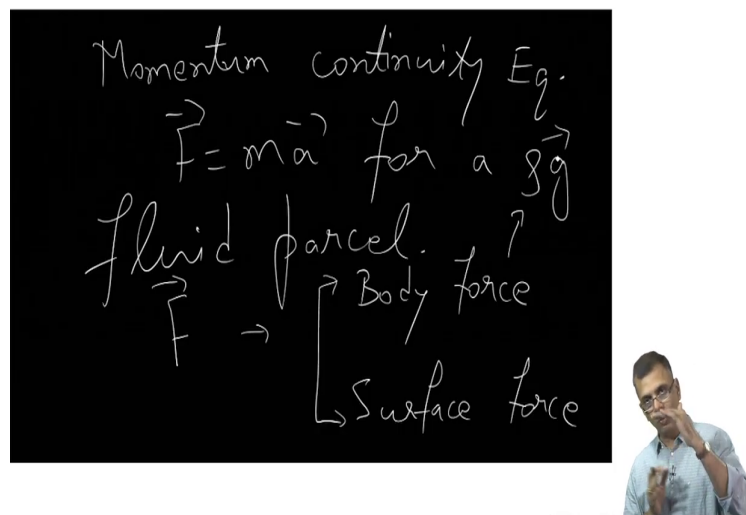 Momentum continuity Eq.
F⃗ = ma⃗ for a ρg⃗
fluid parcel.
F⃗ → Body force
Surface force